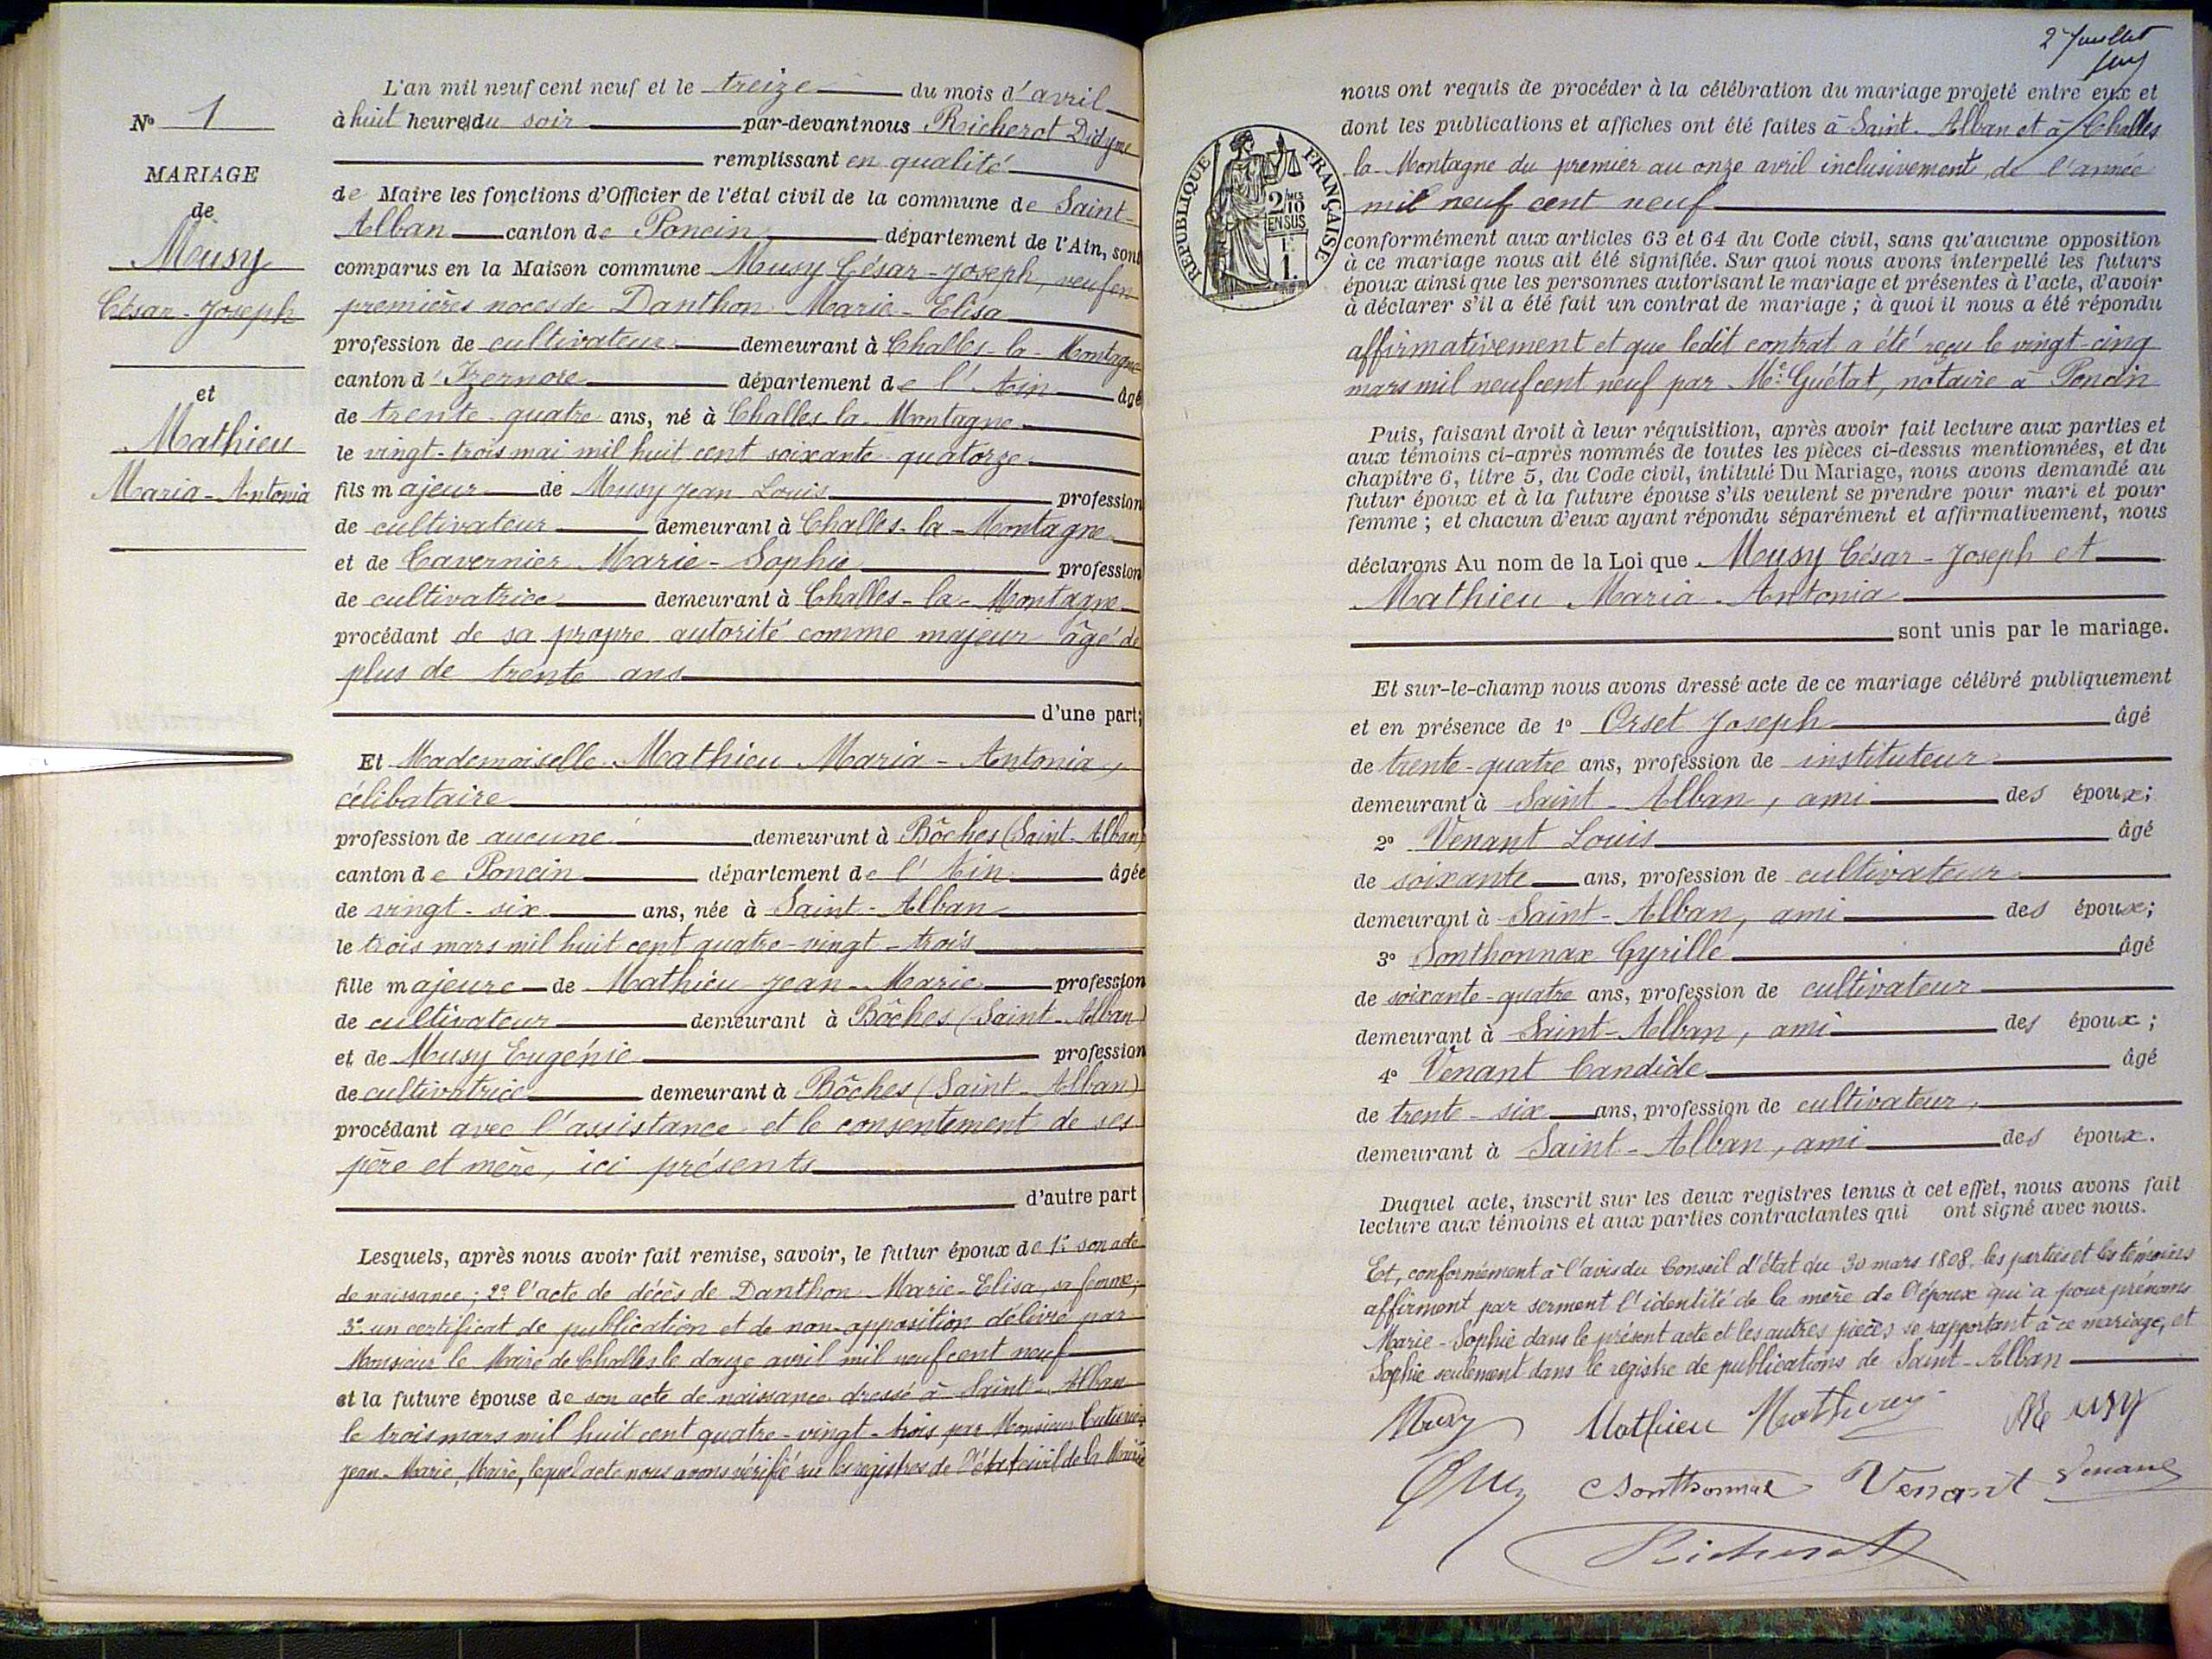 N° 1
MARIAGE
de
Musy
César-Joseph
et
Mathieu
Maria-Antonia
L'an mil neuf cent neuf et le treize du mois d'avril
à huit heures du soir par-devant nous Richerot Didyme
remplissant en qualité
de Maire les fonctions d'Officier de l'état civil de la commune de Saint-
Alban canton de Poncin département de l'Ain, sont
comparus en la Maison commune Musy César-Joseph, veuf en
premières noces de Danthon Marie-Elisa
profession de cultivateur demeurant à Challes-la-Montagne
canton d'Izernore département de l'Ain âgé
de trente-quatre ans, né à Challes-la-Montagne
le vingt-trois mai mil huit cent soixante-quatorze
fils majeur de Musy Jean-Louis profession
de cultivateur demeurant à Challes-la-Montagne
et de Tavernier Marie-Sophie profession
de cultivatrice demeurant à Challes-la-Montagne
procédant de sa propre autorité comme majeur âgé de
plus de trente ans
d'une part;
Et Mademoiselle Mathieu Maria-Antonia,
célibataire
profession de aucune demeurant à Bôches (Saint-Alban)
canton de Poncin département de l'Ain âgée
de vingt-six ans, née à Saint-Alban
le trois mars mil huit cent quatre-vingt-trois
fille majeure de Mathieu Jean-Marie profession
de cultivateur demeurant à Bôches (Saint-Alban)
et de Musy Eugénie profession
de cultivatrice demeurant à Bôches (Saint-Alban)
procédant avec l'assistance et le consentement de ses
père et mère, ici présents
d'autre part
Lesquels, après nous avoir fait remise, savoir, le futur époux de 1° son acte
de naissance; 2° l'acte de décès de Danthon Marie-Elisa, sa femme;
3° un certificat de publication et de non-opposition délivré par
Monsieur le Maire de Challes le douze avril mil neuf cent neuf
et la future épouse de son acte de naissance dressé à Saint-Alban
le trois mars mil huit cent quatre-vingt-trois par Monsieur
Jean-Marie, Maire, lequel acte nous avons vérifié sur les registres de l'état civil de la Mairie
2 Juillet
nous ont requis de procéder à la célébration du mariage projeté entre eux et
dont les publications et affiches ont été faites à Saint-Alban et à Challes
la-Montagne du premier au onze avril inclusivement, de l'année
mil neuf cent neuf
RÉPUBLIQUE FRANÇAISE
2/10 EN SUS
1F.
conformément aux articles 63 et 64 du Code civil, sans qu'aucune opposition
à ce mariage nous ait été signifiée. Sur quoi nous avons interpellé les futurs
époux ainsi que les personnes autorisant le mariage et présentes à l'acte, d'avoir
à déclarer s'il a été fait un contrat de mariage; à quoi il nous a été répondu
affirmativement et que ledit contrat a été reçu le vingt-cinq
mars mil neuf cent neuf par Me Guétat, notaire à Poncin
Puis, faisant droit à leur réquisition, après avoir fait lecture aux parties et
aux témoins ci-après nommés de toutes les pièces ci-dessus mentionnées, et du
chapitre 6, titre 5, du Code civil, intitulé Du Mariage, nous avons demandé au
futur époux et à la future épouse s'ils veulent se prendre pour mari et pour
femme; et chacun d'eux ayant répondu séparément et affirmativement, nous
déclarons Au nom de la Loi que Musy César-Joseph et
Mathieu Maria-Antonia
sont unis par le mariage.
Et sur-le-champ nous avons dressé acte de ce mariage célébré publiquement
et en présence de 1° Orset Joseph âgé
de trente-quatre ans, profession de instituteur
demeurant à Saint-Alban, ami des époux;
2° Venant Louis âgé
de soixante ans, profession de cultivateur
demeurant à Saint-Alban, ami des époux;
3° Sonthonnax Cyrille âgé
de soixante-quatre ans, profession de cultivateur
demeurant à Saint-Alban, ami des époux;
4° Venant Candide âgé
de trente-six ans, profession de cultivateur,
demeurant à Saint-Alban, ami des époux.
Duquel acte, inscrit sur les deux registres tenus à cet effet, nous avons fait
lecture aux témoins et aux parties contractantes qui ont signé avec nous.
Et, conformément à l'avis du Conseil d'état du 30 mars 1808, les parties et les témoins
affirment par serment l'identité de la mère de l'époux qui a pour prénoms
Marie-Sophie dans le présent acte et les autres pièces se rapportant à ce mariage, et
Sophie seulement dans le registre de publications de Saint-Alban
Musy Mathieu Mathieu Musy
Sonthonnax Venant Venant
Richerot